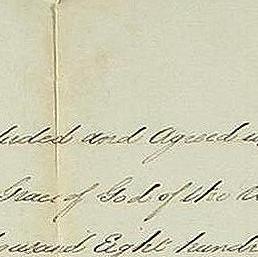 luded and Agreed u
Grace of God of the U
housand Eight hundre